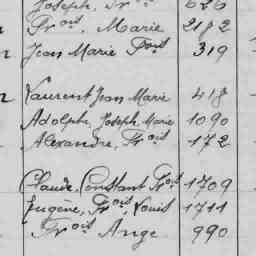 Joseph, Fr^ois 626
Fr^ois, Marie 2182
Jean Marie F^ois 319
Laurent Jean Marie 418
Adolphe, Joseph Marie 1090
Alexandre, Fr^ois 172
Claude, Constant Fr^ois 1709
Eugène, Fr^ois, Louis 1711
Fr^ois Ange 990